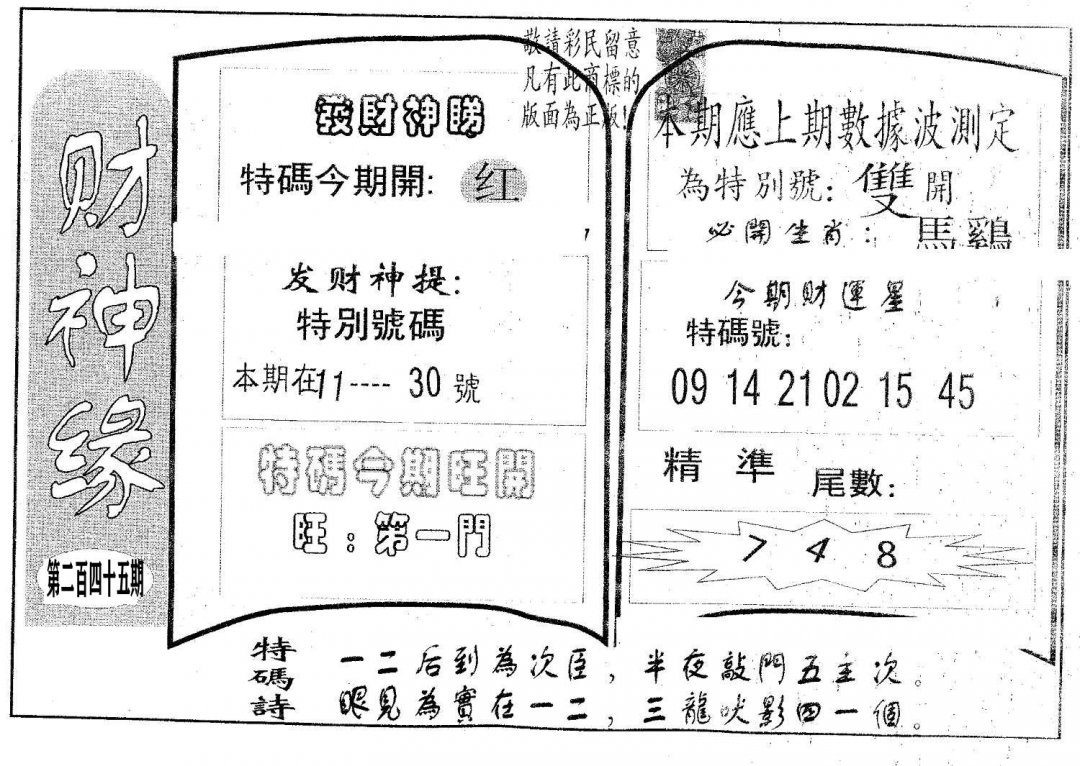 财神缘
第二百四十五期
敬請彩民留意
凡有此商標的
版面為正版!
發財神勝
特碼今期開: 红
发财神提:
特別號碼
本期在11----30號
特碼今期旺開
旺:第一門
本期應上期數據波測定
為特別號:雙開
必開生肖:馬鷄
今期財運星
特碼號:
09 14 21 02 15 45
精準 尾數:
7 4 8
特碼詩
一二后到為次臣,半夜敲門五主次。
眼見為實在一二,三龍吠影四一個。